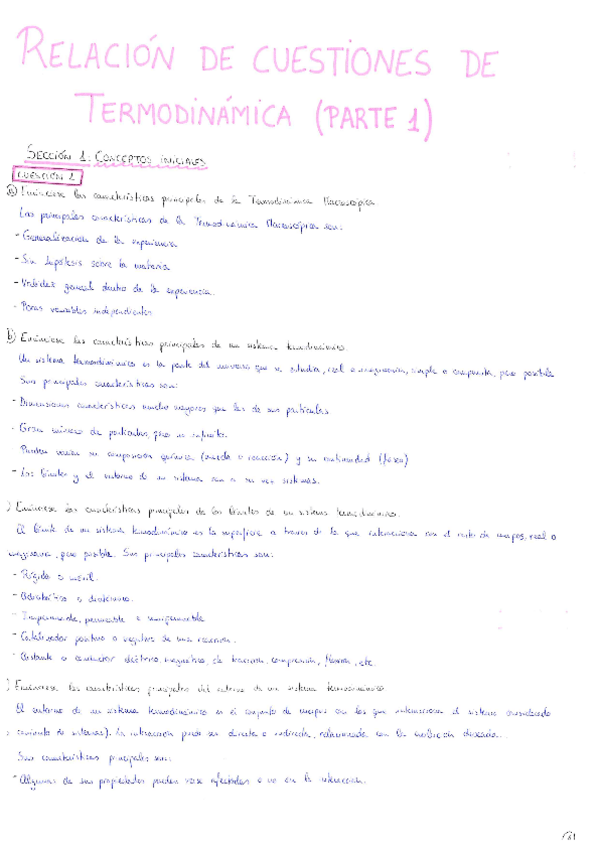 RELACIÓN DE CUESTIONES DE
TERMODINÁMICA (PARTE 1)
SECCIÓN 1: CONCEPTOS INICIALES
CUESTIÓN 1
a) Enúnciese las características principales de la Termodinámica Macroscópica.
Las principales características de la Termodinámica Macroscópica son:
- Generalización de la experiencia
- Sin hipótesis sobre la materia
- Validez general dentro de la experiencia.
- Pocas variables independientes
b) Enúnciese las características principales de un sistema termodinámico.
Un sistema termodinámico es la parte del universo que se estudia, real o imaginaria, simple o compuesta, pero posible.
Sus principales características son:
- Dimensiones características mucho mayores que las de sus partículas.
- Gran número de partículas, pero no infinito.
- Pueden variar su composición química (mezcla o reacción) y su continuidad (fases)
- Los límites y el entorno de un sistema son a su vez sistemas.
) Enúnciese las características principales de los límites de un sistema termodinámico.
El límite de un sistema termodinámico es la superficie a través de la que interacciona con el resto de cuerpos, real o
imaginaria, pero posible. Sus principales características son:
- Rígido o móvil.
- Adiabático o diatermano.
- Impermeable, permeable o semipermeable
- Catalizador positivo o negativo de una reacción.
- Aislante o conductor eléctrico, magnético, de tracción, compresión, flexión, etc.
) Enúnciese las características principales del entorno de un sistema termodinámico
El entorno de un sistema termodinámico es el conjunto de cuerpos con los que interacciona el sistema considerado
conjunto de sistemas). La interacción puede ser directa o indirecta, relacionada con la
Sus características principales son:
- Algunas de sus propiedades pueden verse afectadas o no en la interacción.